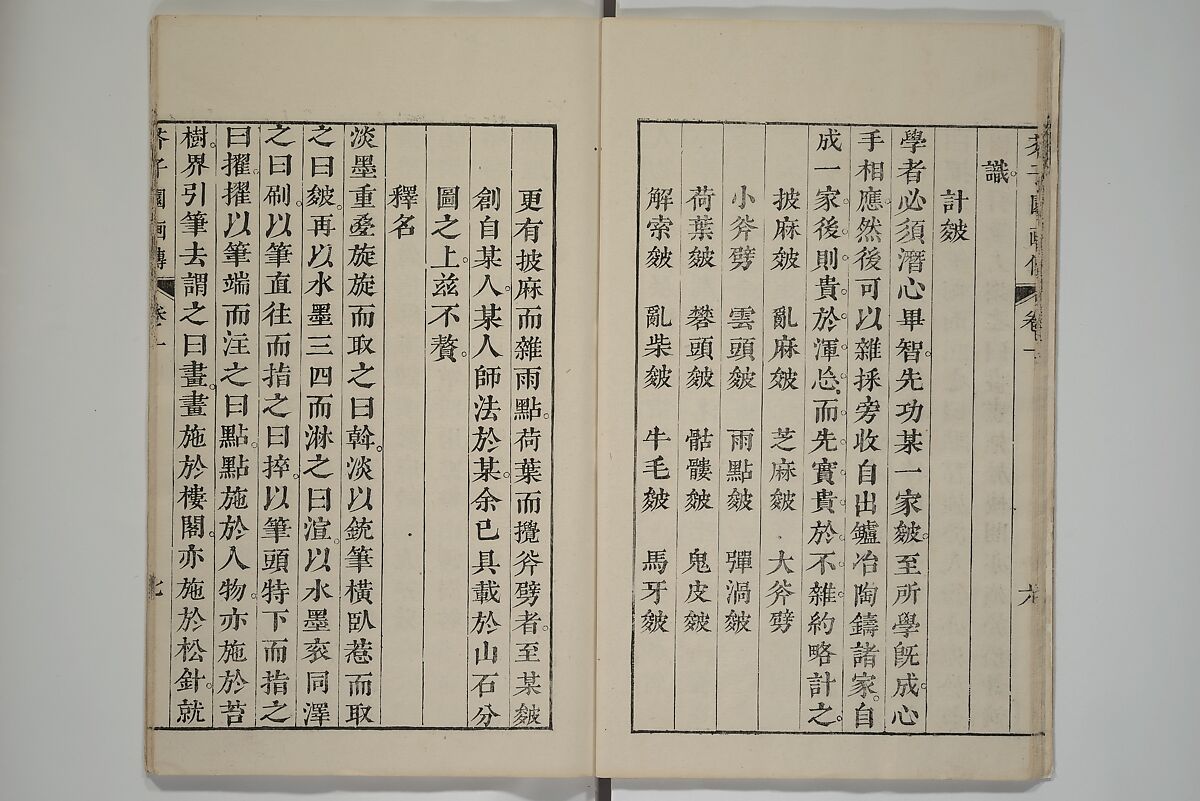 芥子園畫傳 卷一 六
識。
計皴
學者必須潛心畢智。先功某一家皴。至所學旣成。心
手相應。然後可以雜採旁收。自出鑪冶。陶鑄諸家。自
成一家。後則貴於渾忘。而先實貴於不雜。約略計之。
披麻皴 亂麻皴 芝麻皴 大斧劈
小斧劈 雲頭皴 雨點皴 彈渦皴
荷葉皴 礬頭皴 骷髏皴 鬼皮皴
解索皴 亂柴皴 牛毛皴 馬牙皴
更有披麻而雜雨點。荷葉而攪斧劈者。至某皴
創自某人。某人師法於某。余已具載於山石分
圖之上。茲不贅。
釋名
淡墨重疊旋旋而取之曰斡。淡以銳筆橫臥惹而取
之曰皴。再以水墨三四而淋之曰渲。以水墨衮同澤
之曰刷。以筆直往而指之曰捽。以筆頭特下而指之
曰擢。擢以筆端而注之曰點。點施於人物。亦施於苔
樹。界引筆去謂之曰畫。畫施於樓閣。亦施於松針。就
芥子園画傳 卷一 七